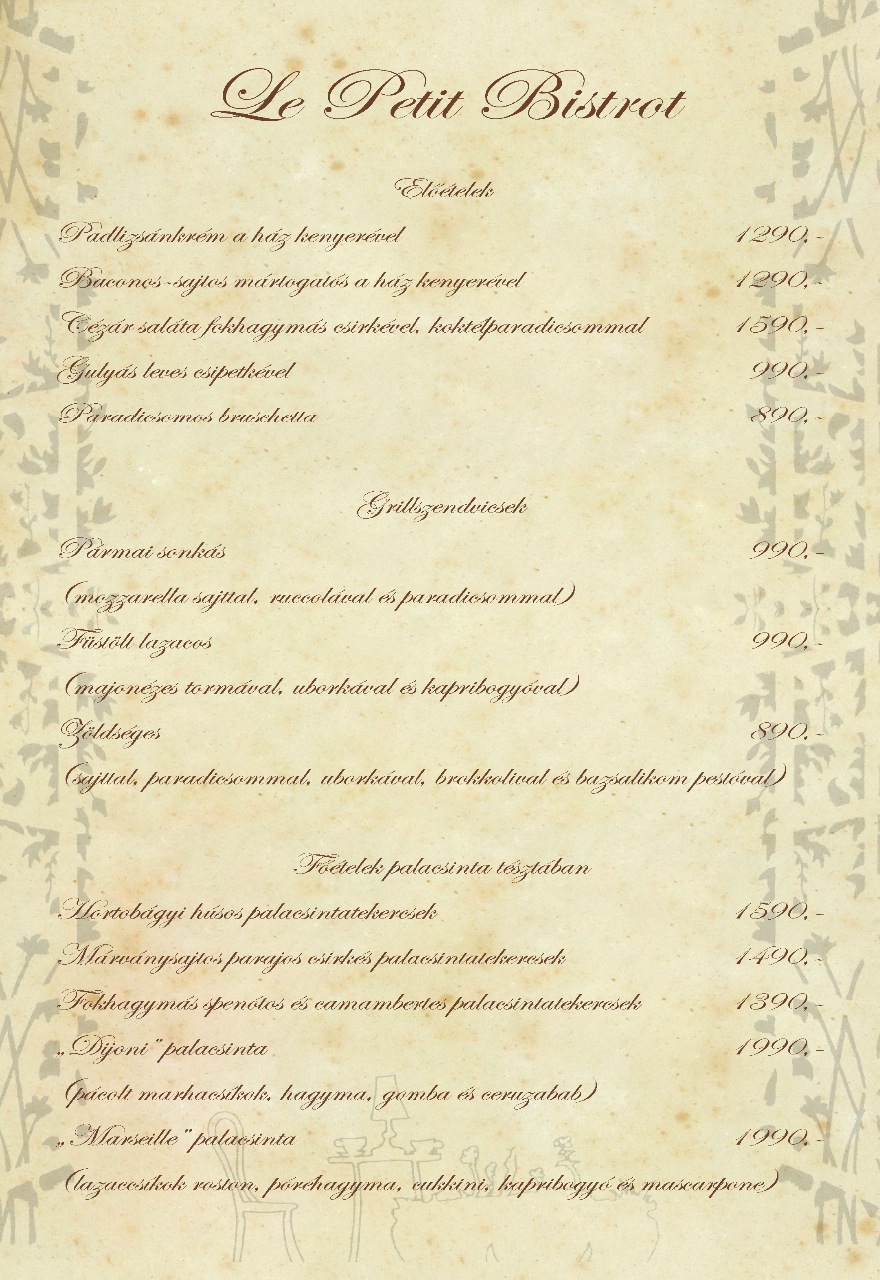 Le Petit Bistrot
Előételek
Padlizsánkrém a ház kenyerével 1290.-
Baconos-sajtos mártogatós a ház kenyerével 1290.-
Cézár saláta fokhagymás csirkével, koktélparadicsommal 1590.-
Gulyás leves csipetkével 990.-
Paradicsomos bruschetta 890.-
Grillszendvicsek
Pármai sonkás 990.-
(mozzarella sajttal, ruccolával és paradicsommal)
Füstölt lazacos 990.-
(majonézes tormával, uborkával és kapribogyóval)
Zöldséges 890.-
(sajttal, paradicsommal, uborkával, brokkolival és bazsalikom pestóval)
Főételek palacsinta tésztában
Hortobágyi húsos palacsintatekercsek 1590.-
Márványsajtos parajos csirkés palacsintatekercsek 1490.-
Fokhagymás spenótos és camambertes palacsintatekercsek 1390.-
„Dijoni” palacsinta 1990.-
(pácolt marhacsíkok, hagyma, gomba és ceruzabab)
„Marseille” palacsinta 1990.-
(lazaccsíkok roston, póréhagyma, cukkini, kapribogyó és mascarpone)